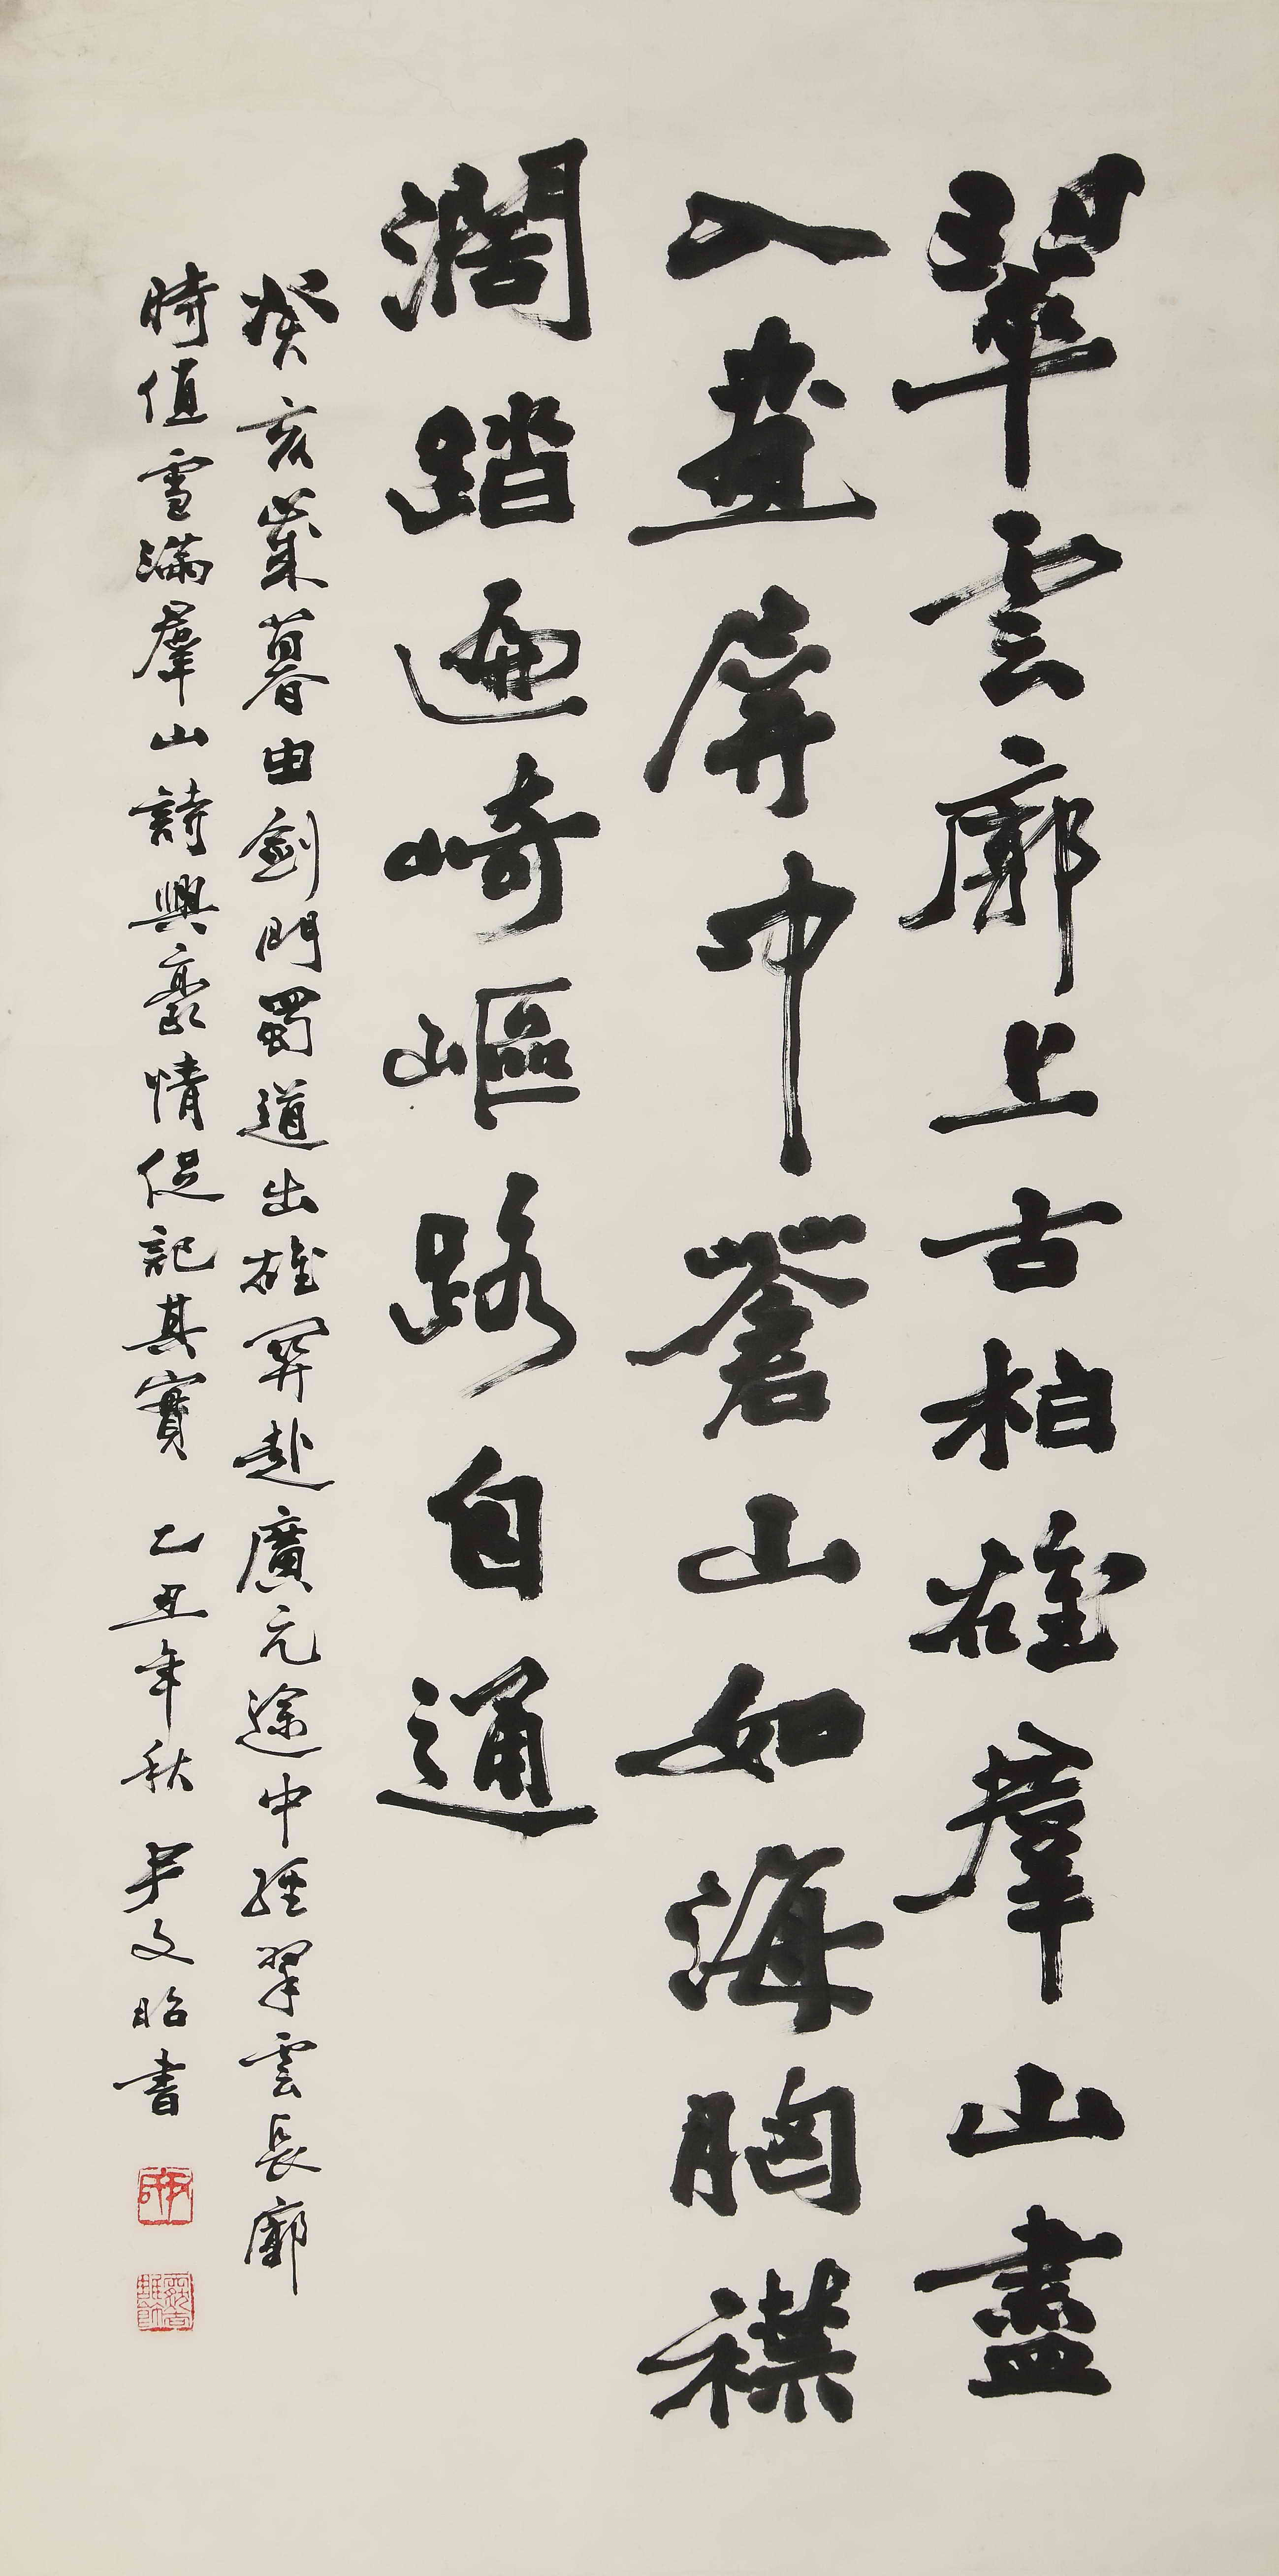 翠雲廊上古柏雄羣山盡
入畫屏中蒼山如海胸襟
濶踏遍崎嶇路自通
癸亥歲暮由劍門蜀道出雄關赴廣元途中經翠雲長廊
時值雪滿羣山詩興豪情促記其實 乙丑年秋 尹文昭書